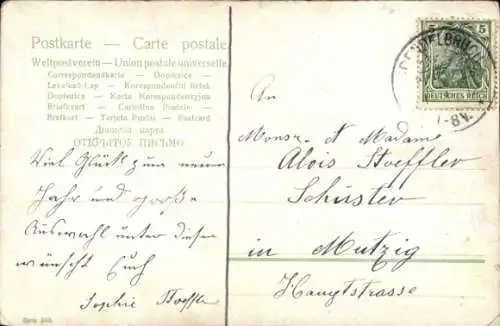 Postkarte — Carte postale
Weltpostverein — Union postale universelle
Correspondenzkarte — Dopisnice —
Levelező-Lap — Korespondenční lístek
Dopisnica — Karta Korespondencyjna
Briefkaart — Cartolina Postale —
Brefkort — Tarjeta Postal — Postcard
ОТКРЫТОЕ ПИСЬМО
Viel Glück zum neuen
Jahr und große
Auswahl unter diesen
wünscht Euch
Sophie Stoeffler
Serie
5 5
DEUTSCHES REICH
An
Monsr. et Madame
Alois Stoeffler
Schuster
in Mutzig
Hauptstrasse